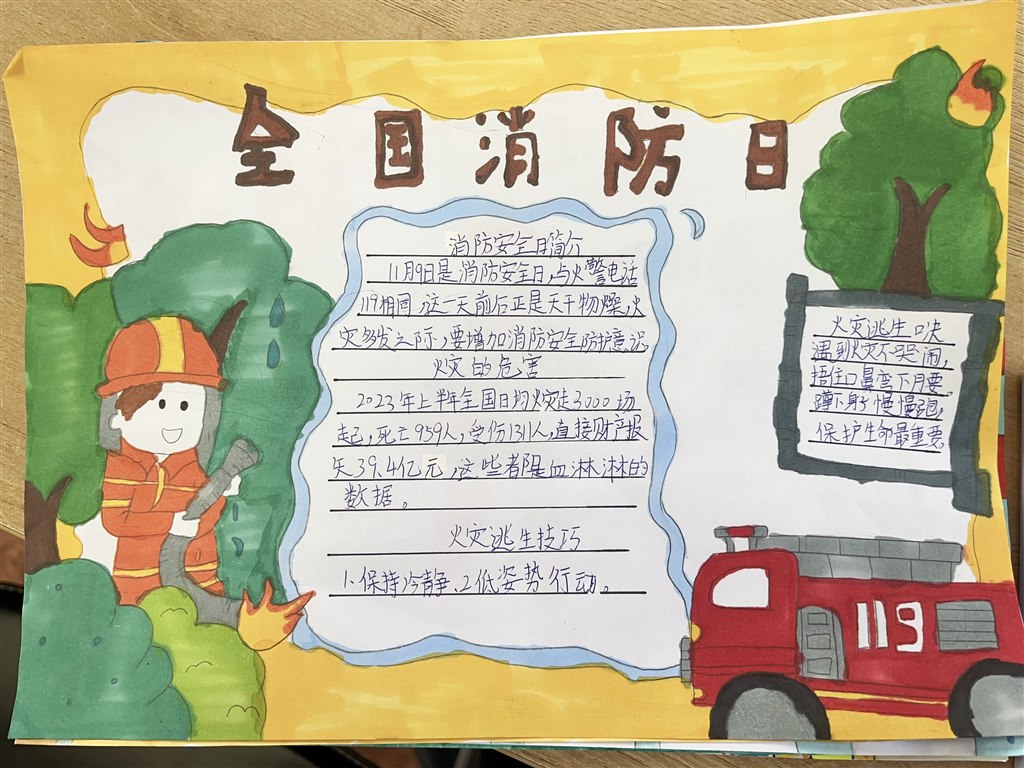 全国消防日
消防安全日简介
11月9日是消防安全日,与火警电话
119相同,这一天前后正是天干物燥,火
灾多发之际,要增加消防安全防护意识
火灾的危害
2023年上半年全国日均火灾走3000场
起,死亡959人,受伤1311人,直接财产报
失39.4亿元,这些都是血淋淋的
数据。
火灾逃生技巧
1.保持冷静、2低姿势行动。
火灾逃生口决
遇到火灾不哭闹,
捂住口鼻弯下月要
蹲下身子慢慢跑,
保护生命最重要
119